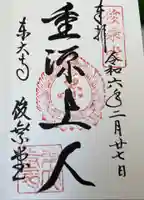 奉拝
令和六年二月廿七日
重源上人
東大寺
俊乗堂